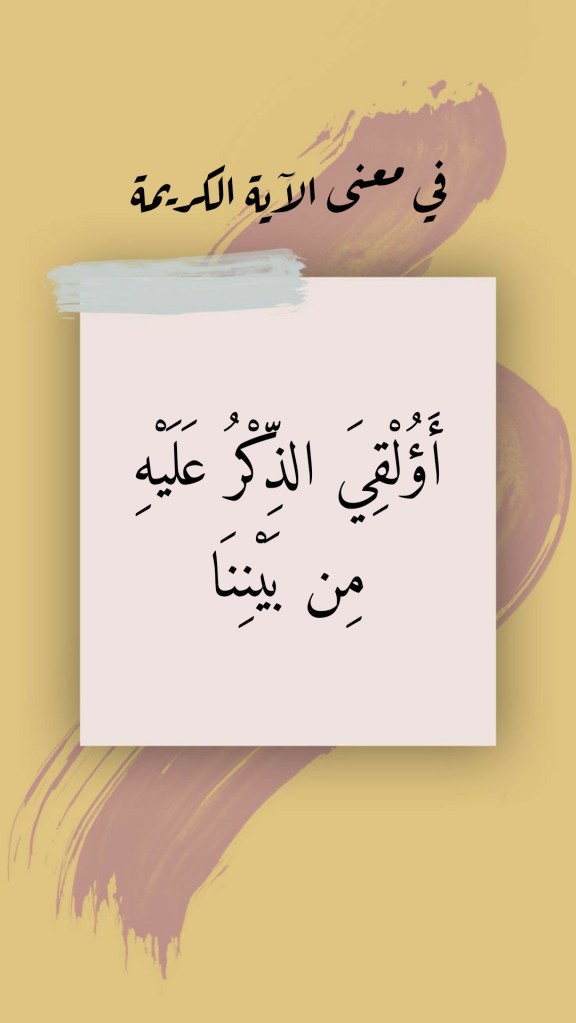 في معنى الآية الكريمة
أَؤُلْقِيَ الذِّكْرُ عَلَيْهِ
مِن بَيْنِنَا